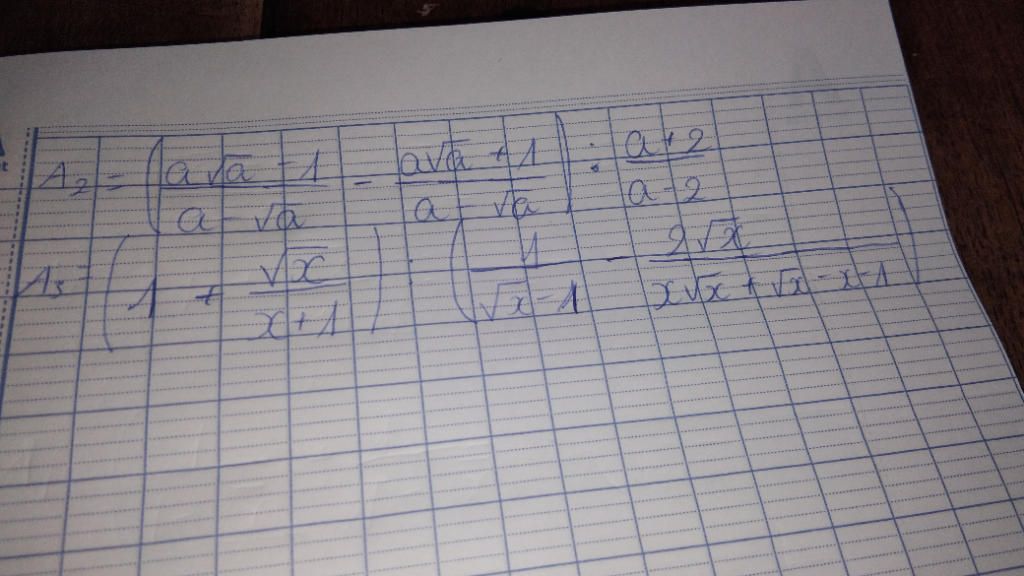 A₂ = ( (a√a - 1)/(a - √a) - (a√a + 1)/(a - √a) ) : (a + 2)/(a - 2)
A₃ = ( 1 + √x/(x + 1) ) : ( 1/(√x - 1) - 2√x/(x√x + √x - x - 1) )